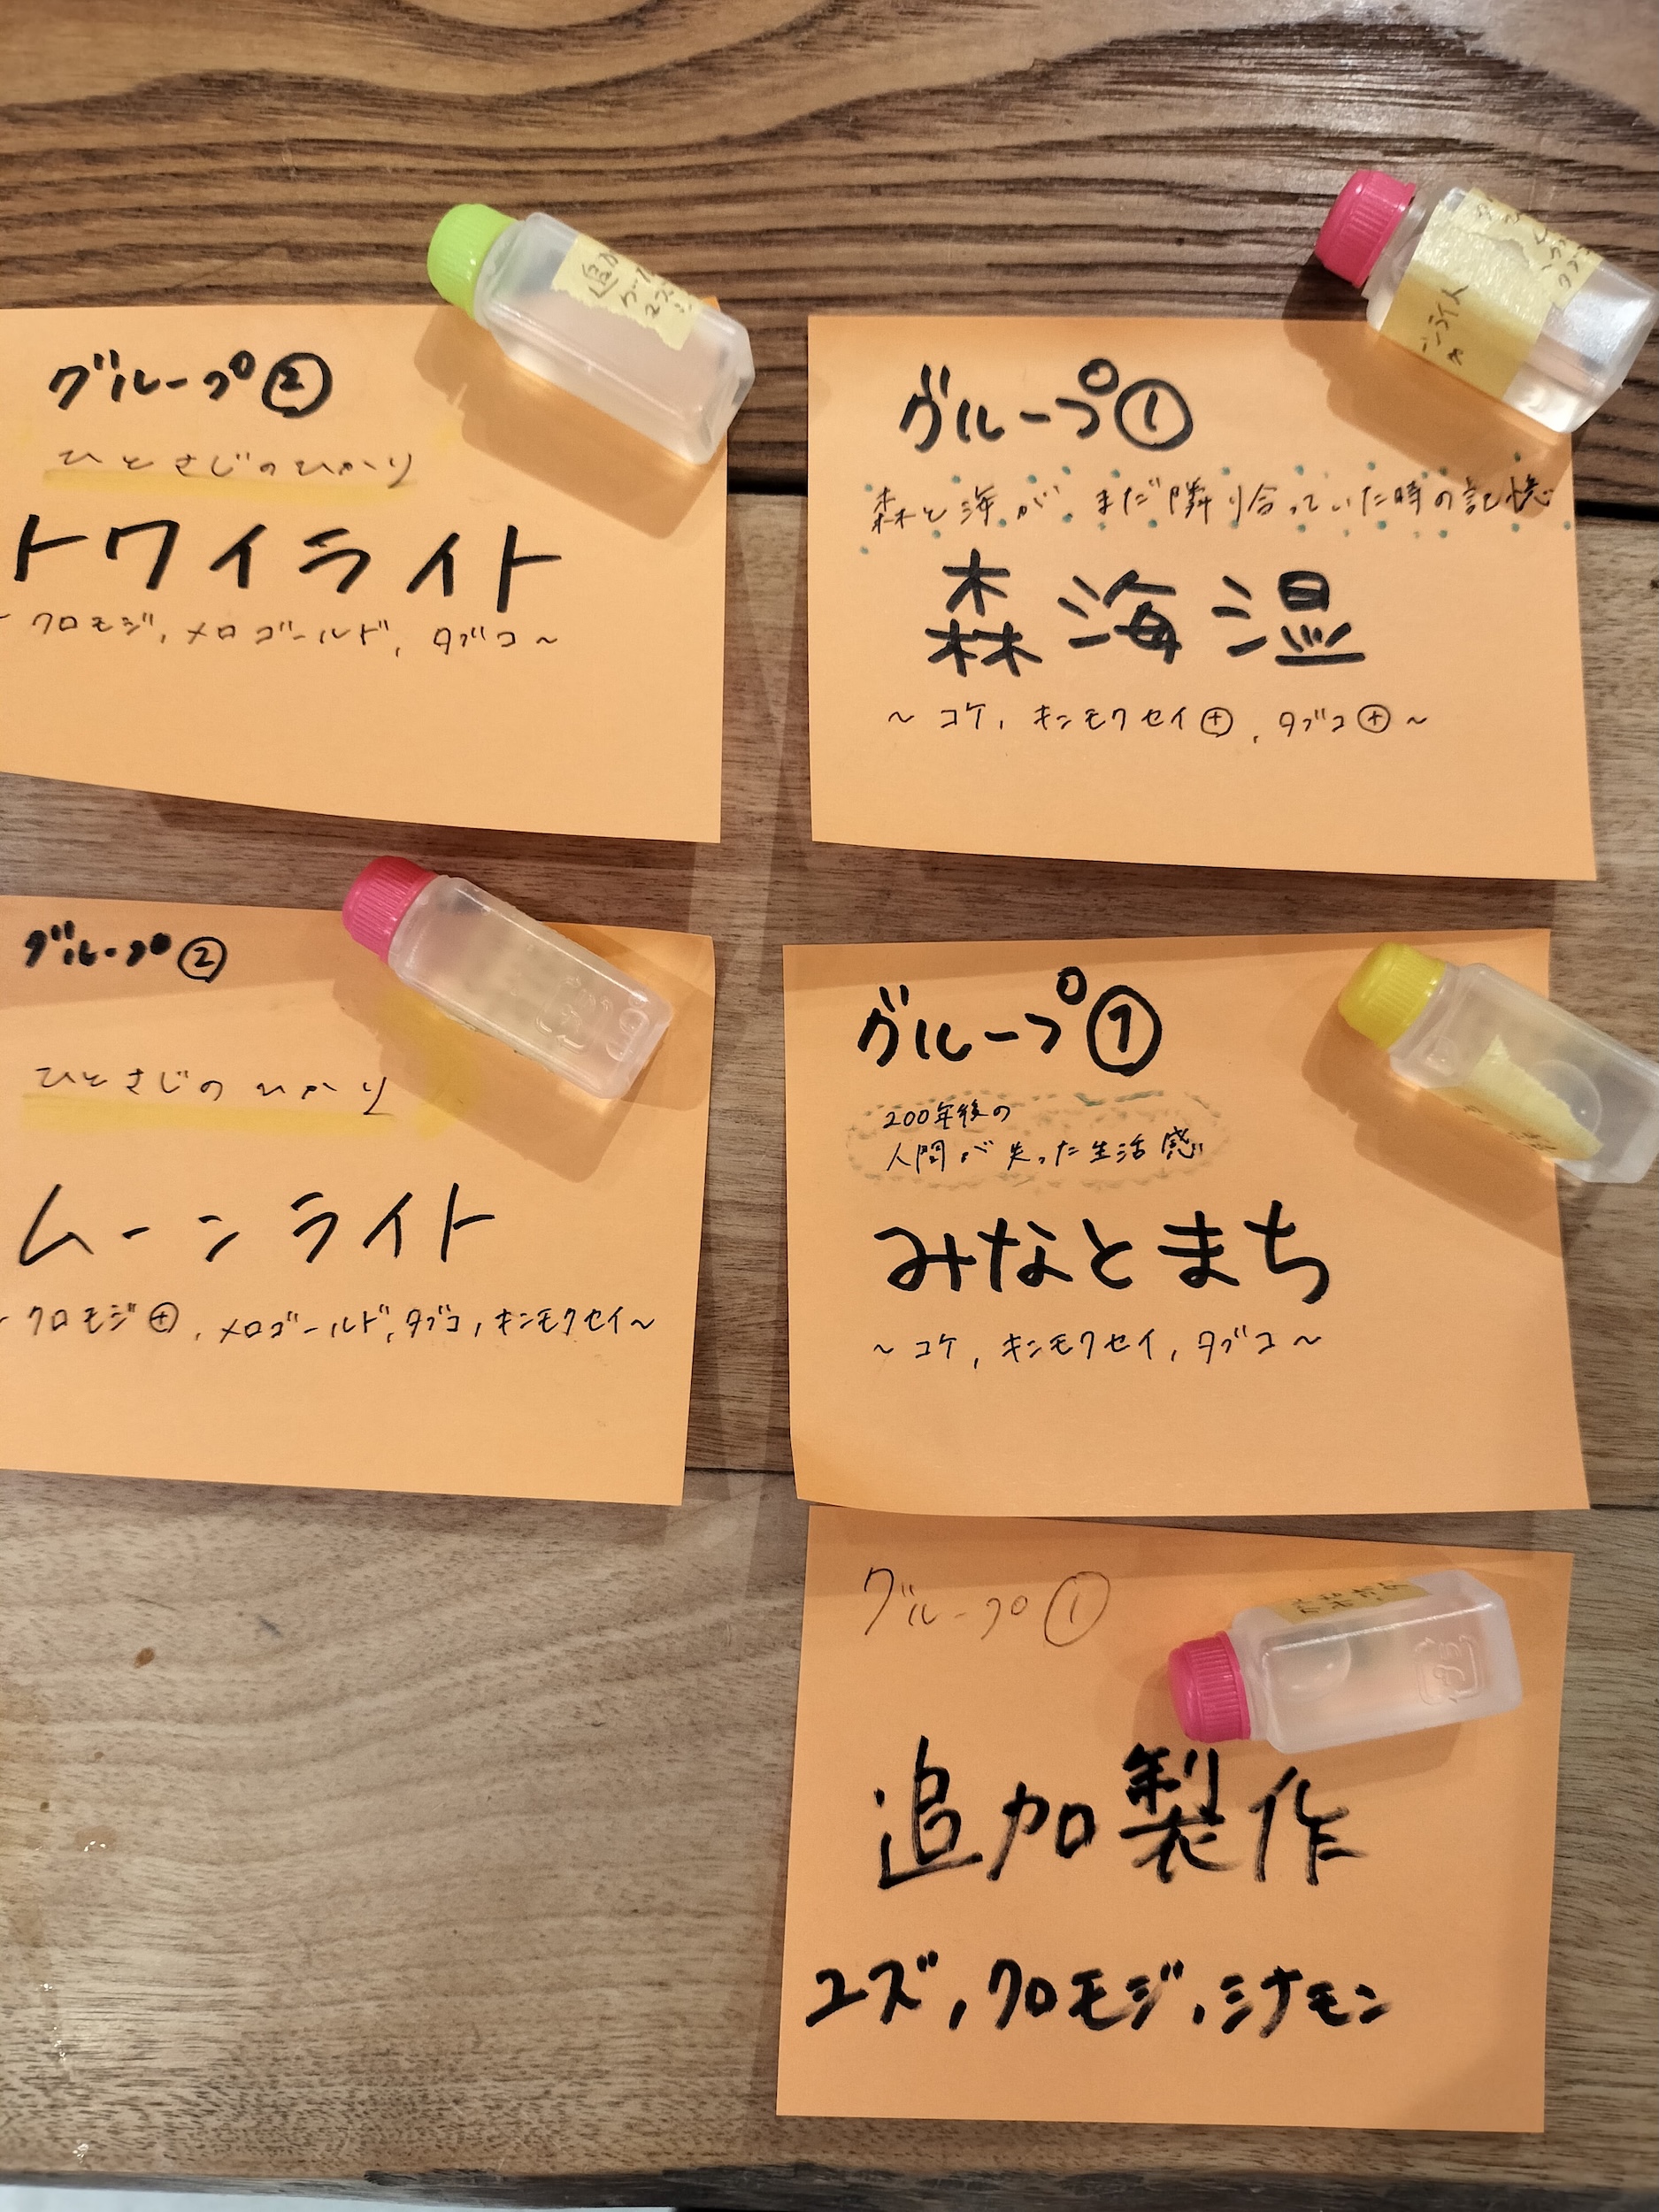 グループ②
ひとさじのひかり
トワイライト
クロモジ, メロゴールド, タブコ～
グループ①
森と海が、まだ隣り合っていた時の記憶
森海湿
～コケ, キンモクセイ⊕, タブコ⊕～
グループ②
ひとさじのひかり
ムーンライト
クロモジ⊕, メロゴールド, タブコ, キンモクセイ～
グループ①
200年後の
人間が失った生活感
みなとまち
～コケ, キンモクセイ, タブコ～
グループ①
追加製作
ユズ, クロモジ, シナモン